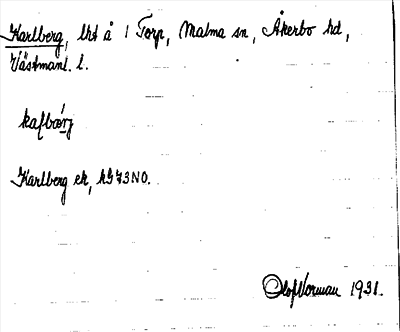 Karlberg, lht å 1 Torp, Malma sn, Åkerbo hd,
Västmanl. l.
Karlberg ek, kg 73 NO.
Olof Norman 1931.